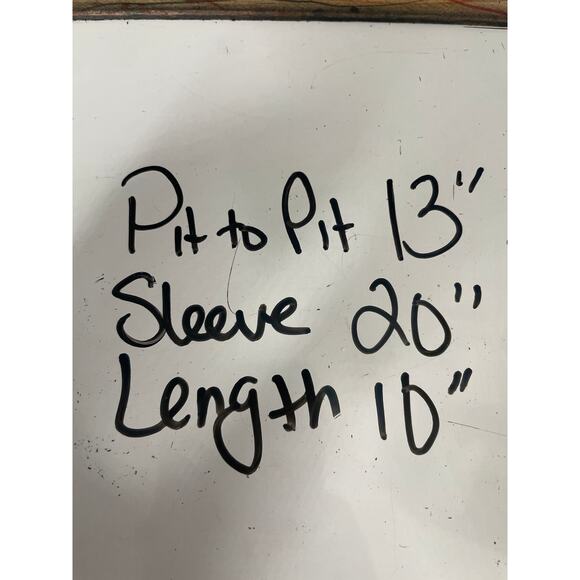 Pit to Pit 13"
Sleeve 20"
Length 10"